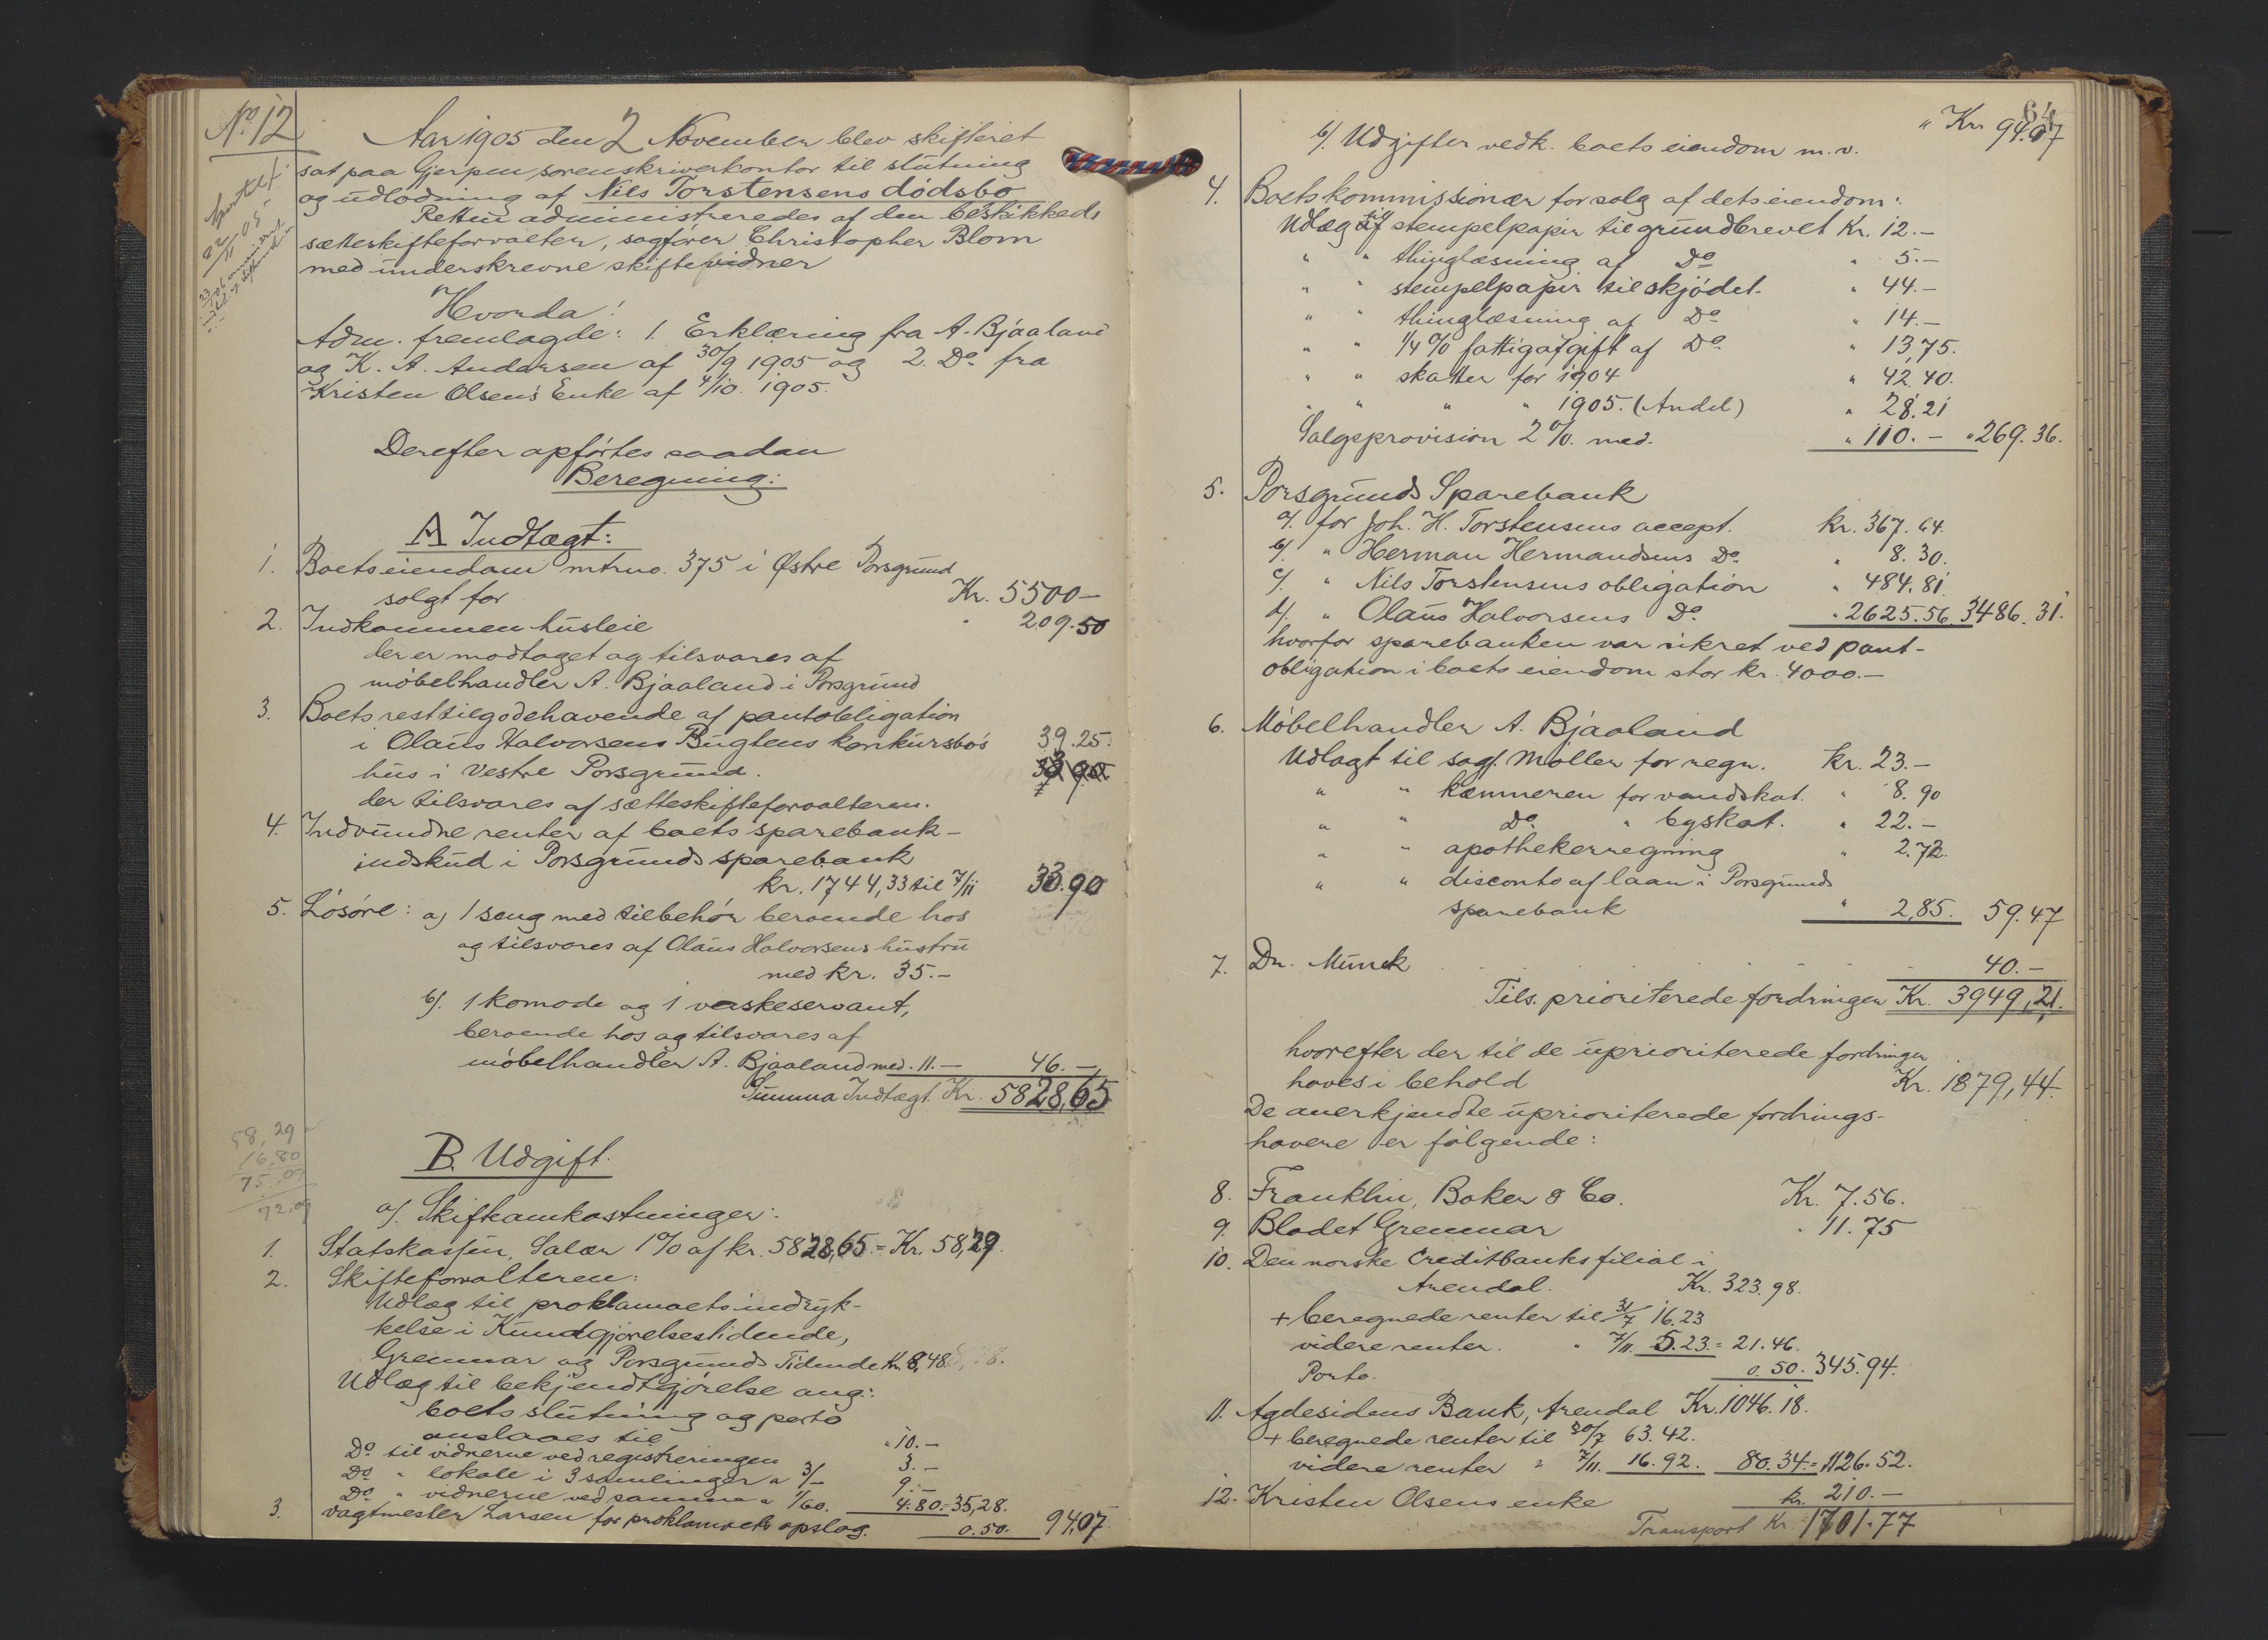 No 12
Aar 1905 den 2 November blev skifteret
sat paa Gjerpen sorenskriverkontor til slutning
og udlodning af Nils Torstensens dödsbo
Retten administreredes af den beskikkede
sætteskifteforvalter, sagförer Christopher Blom
med underskrevne skiftevidner
Hvorda:
Adm. fremlagde: 1. Erklæring fra A. Bjaaland
og K. A. Andersen af 30/9 1905 og 2. Do fra
Kristen Olsens Enke af 4/10. 1905.
Derefter opförtes saadan
Beregning:
A Indtægt:
1. Boets eiendom mtrno. 375 i Østre Porsgrund
solgt for Kr. 5500 —
2. Indkommen husleie " 209.50
der er modtaget og tilsvares af
möbelhandler A. Bjaaland i Porsgrund
3. Boets resttilgodehavende af pantobligation
i Olaus Halvorsens Bugtens konkursbo's 39.25.
hus i Vestre Porsgrund.
der tilsvares af sætteskifteforvalteren.
4. Indvundne renter af boets sparebank-
indskud i Porsgrunds sparebank
kr. 1744,33 til 7/11 33.90
5. Lösöre: a) 1 seng med tilbehör beroende hos
og tilsvares af Olaus Halvorsens hustru
med kr. 35.—
b). 1 komode og 1 vaskeservant,
beroende hos og tilsvares af
möbelhandler A. Bjaaland med. 11.— 46.—
Summa Indtægt Kr. 5828,65
58,29
16,80
75,09
72.09
B. Udgift.
a). Skifteomkostninger:
1. Statskassen, Salær 1% af kr. 5828,65 = Kr. 58,29.
2. Skifteforvalteren:
Udlæg til proklamaets indryk-
kelse i Kundgjörelsestidende,
Grenmar og Porsgrunds Tidende Kr. 8,48
Udlæg til bekjendtgjörelse ang:
boets slutning og porto
anslaaes til " 10.—
Do til vidnerne ved registreringen 3.—
Do " lokale i 3 samlinger a 3/— 9.—
Do " vidnerne ved samme a 1/60. 4.80. = 35,28.
3. Vagtmester Larsen for proklamaets opslag. 0.50. 94,07.
64
" Kr. 94.07
b). Udgifter vedk. boets eiendom m.v.
4. Boets kommissionær for salg af dets eiendom:
Udlæg til stempelpapir til grundbrevet Kr. 12.—
" " thinglæsning af Do " 5.—
" " stempelpapir til skjödet. " 44.—
" " thinglæsning af Do " 14.—
" " 1/4 % fattigafgift af Do " 13,75.
" " skatter for 1904 " 42.40.
" " " " 1905. (Andel) " 28.21
Salgsprovision 2%. med. " 110.— " 269.36.
5. Porsgrunds Sparebank
a). for Joh. H. Torstensens accept. kr. 367.64.
b). " Herman Hermandsens Do " 8.30.
c). " Nils Torstensens obligation " 484.81
d). " Olaus Halvorsens Do " 2625.56. 3486.31.
hvorfor sparebanken var sikret ved pant-
obligation i boets eiendom stor kr. 4000.—
6. Möbelhandler A. Bjaaland
Udlagt til sagf. Möller for regn. kr. 23.—
" " kæmneren for vandskat. " 8.90
" " Do " byskat. " 22.—
" " apothekerregning " 2.72.
" " disconto af laan i Porsgrunds
sparebank " 2,85. 59.47
7. Dr. Munck 40.—
Tils. prioriterede fordringer Kr. 3949,21.
hvorefter der til de uprioriterede fordringer
haves i behold Kr. 1879,44.
De anerkjendte uprioriterede fordrings-
havere er fölgende:
8. Franklin, Baker & Co. Kr. 7.56.
9. Bladet Grenmar " 11.75
10. Den norske Creditbanks filial i
Arendal. Kr. 323.98.
+ beregnede renter til 31/7 16.23
videre renter. " 7/11. 5.23. = 21.46.
Porto. 0.50. 345.94.
11. Agdesidens Bank, Arendal Kr. 1046.18.
+ beregnede renter til 20/7 63.42.
videre renter " 7/11. 16.92. 80.34. = 1126.52.
12. Kristen Olsens enke kr. 210.—
Transport Kr. 1701.77